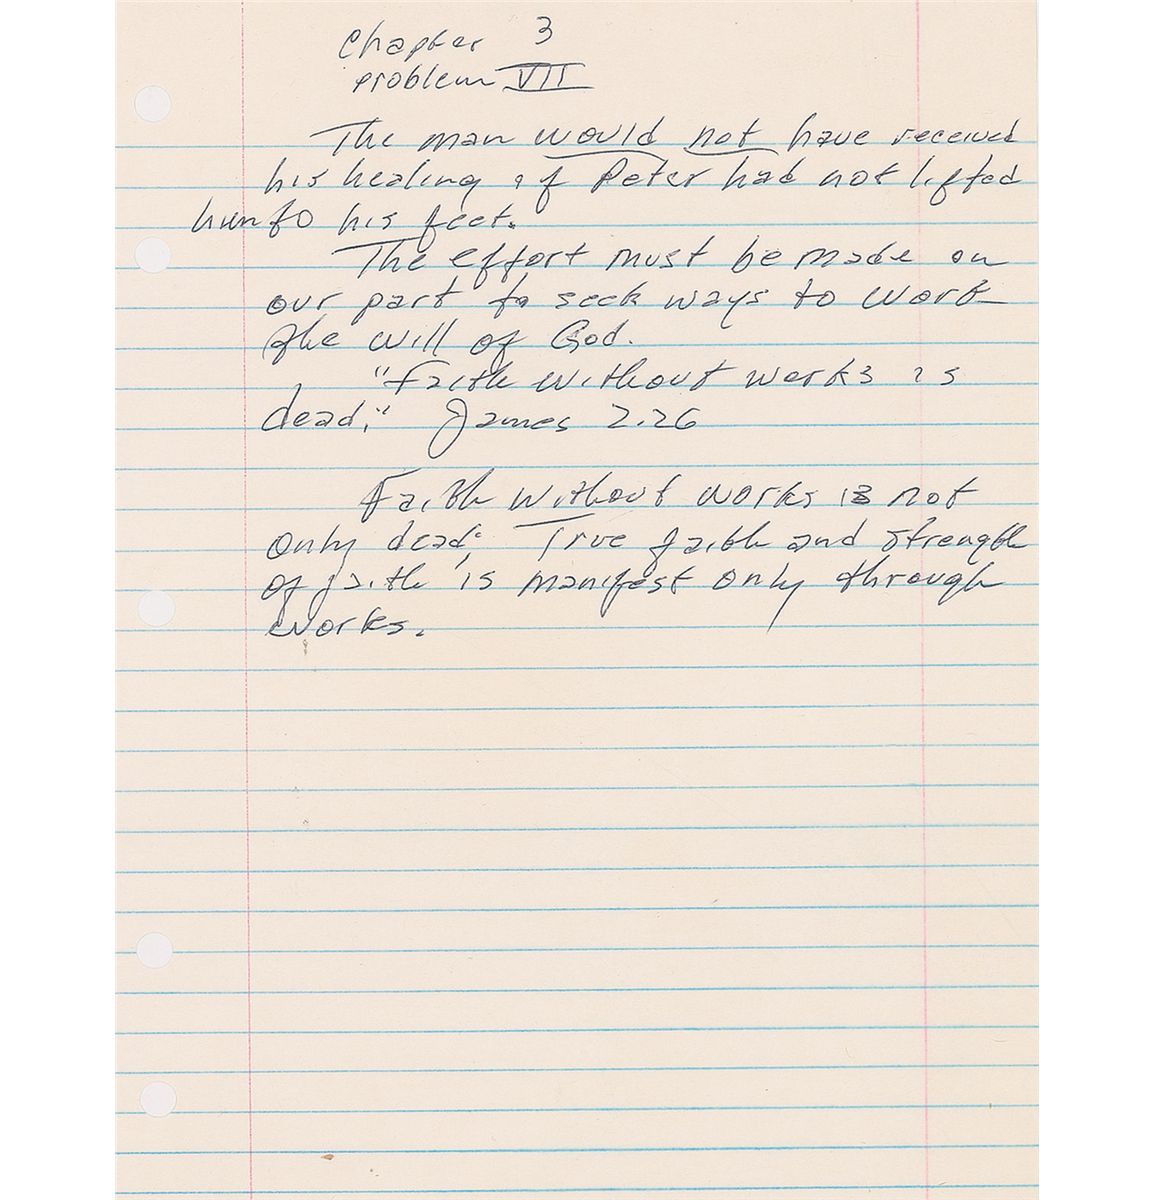 Chapter 3
problem VII
The man would not have received
his healing if Peter had not lifted
him to his feet.
The effort must be made on
our part to seek ways to work
the will of God.
"Faith without works is
dead;" James 2.26
Faith without works is not
only dead; True faith and strength
of faith is manifest only through
works.